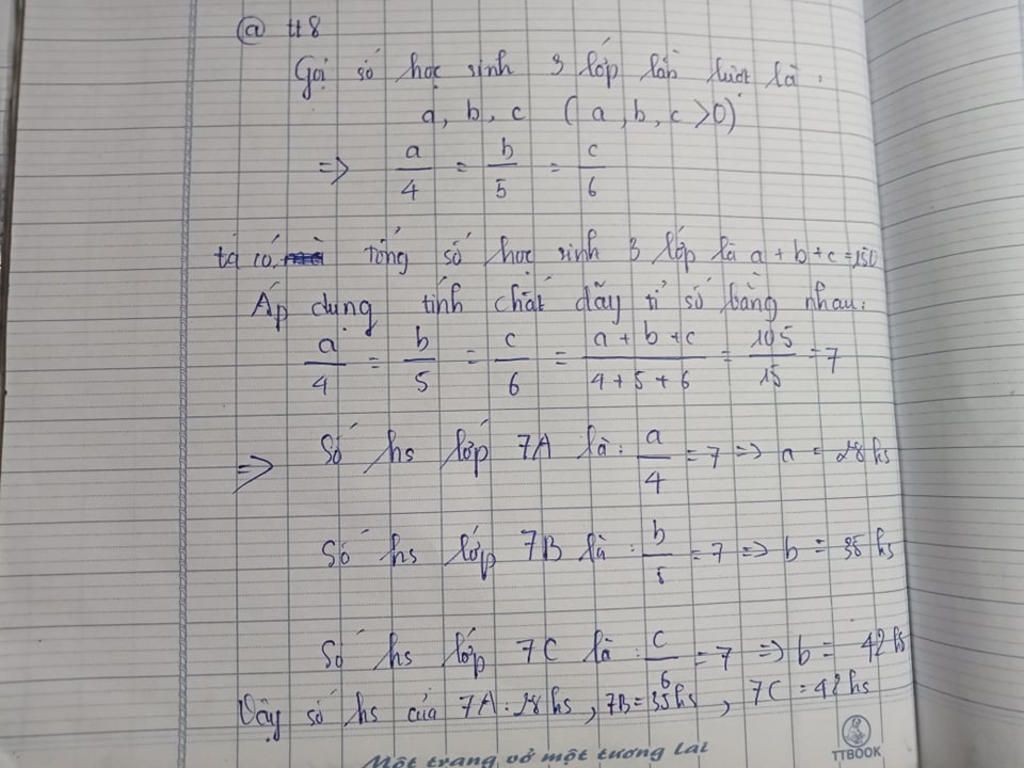 ⓐ #8
Gọi số học sinh 3 lớp lần lượt là :
a, b, c (a, b, c > 0)
=> a/4 = b/5 = c/6
ta có tổng số học sinh 3 lớp là a + b + c = 150
Áp dụng tính chất dãy tỉ số bằng nhau:
a/4 = b/5 = c/6 = (a + b + c)/(4 + 5 + 6) = 105/15 = 7
=> Số hs lớp 7A là: a/4 = 7 => a = 28 hs
Số hs lớp 7B là: b/5 = 7 => b = 35 hs
Số hs lớp 7C là: c/6 = 7 => b = 42 hs
Vậy số hs của 7A: 28 hs, 7B = 35 hs, 7C = 42 hs
Một trang vở một tương lai
TTBOOK